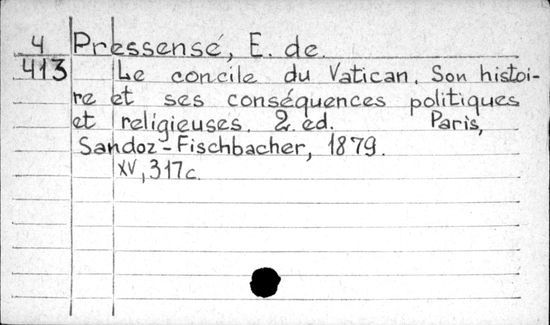 4 Pressensé, E. de.
413 Le concile du Vatican. Son histoi-
re et ses conséquences politiques
et religieuses. 2. ed. Paris,
Sandoz-Fischbacher, 1879.
XV, 317c.